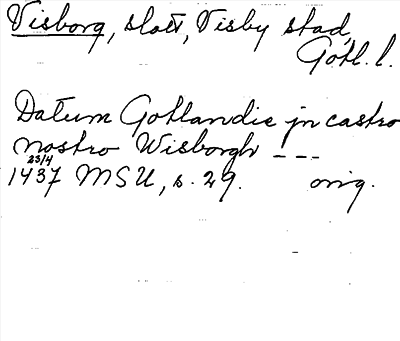 Visborg, slott, Visby stad,
Gotl. l.
Datum Gotlandie jn castro
nostro Wisborgh ---
23/4
1437 MSU, s. 29. orig.